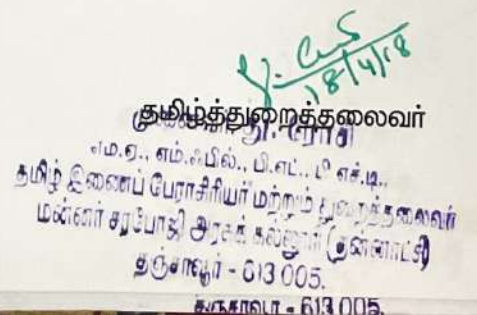 18/4/18
தமிழ்த்துறைத்தலைவர்
எம்.ஏ., எம்.ஃபில்., பி.எட்., பி எச்.டி.,
தமிழ் இணைப் பேராசிரியர் மற்றும் துறைத்தலைவர்
மன்னர் சரபோஜி அரசுக் கல்லூரி (தன்னாட்சி)
தஞ்சாவூர் - 613 005.
தஞ்சாவூர் - 613 005.